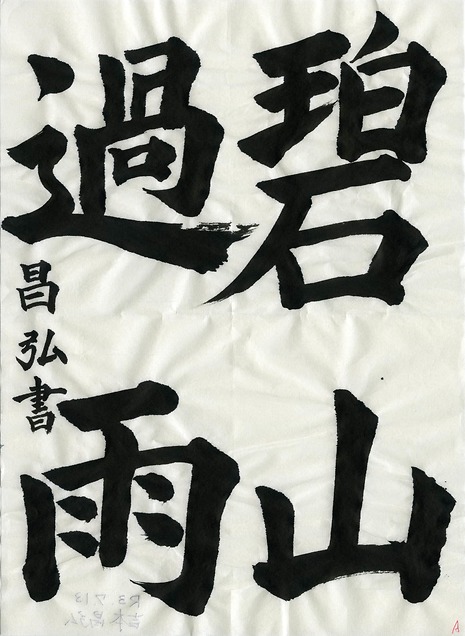 碧山
過雨
昌弘書
R3.7.13
A